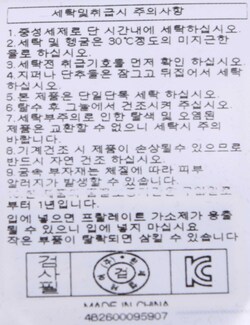 세탁및취급시 주의사항
1.중성세제로 단 시간내에 세탁하십시오.
2.세탁 및 헹굼은 30℃정도의 미지근한
물로 하십시오.
3.세탁전 취급기호를 먼저 확인 하십시오
4.지퍼나 단추등은 잠그고 뒤집어서 세탁
하십시오.
5.본 제품은 단일단독 세탁 하십시오
6.탈수 후 그늘에서 건조시켜 주십시오.
7.세탁부주의로 인한 탈색 및 오염원
제품은 교환할 수 없으니 세탁시 주의
바랍니다.
8.기계건조 시 제품이 손상될수 있으므로
반드시 자연 건조 하십시오.
9.금속 부자재는 체질에 따라 피부
알러지가 발생할 수 있습니다.
부터 1년입니다.
입에 넣으면 프탈레이트 가소제가 용출
될 수 있으니 입에 넣지 마십시요
작은 부품이 탈락되면 삼킬 수 있습니다
검사필
검
MADE IN CHINA
4B2600095907